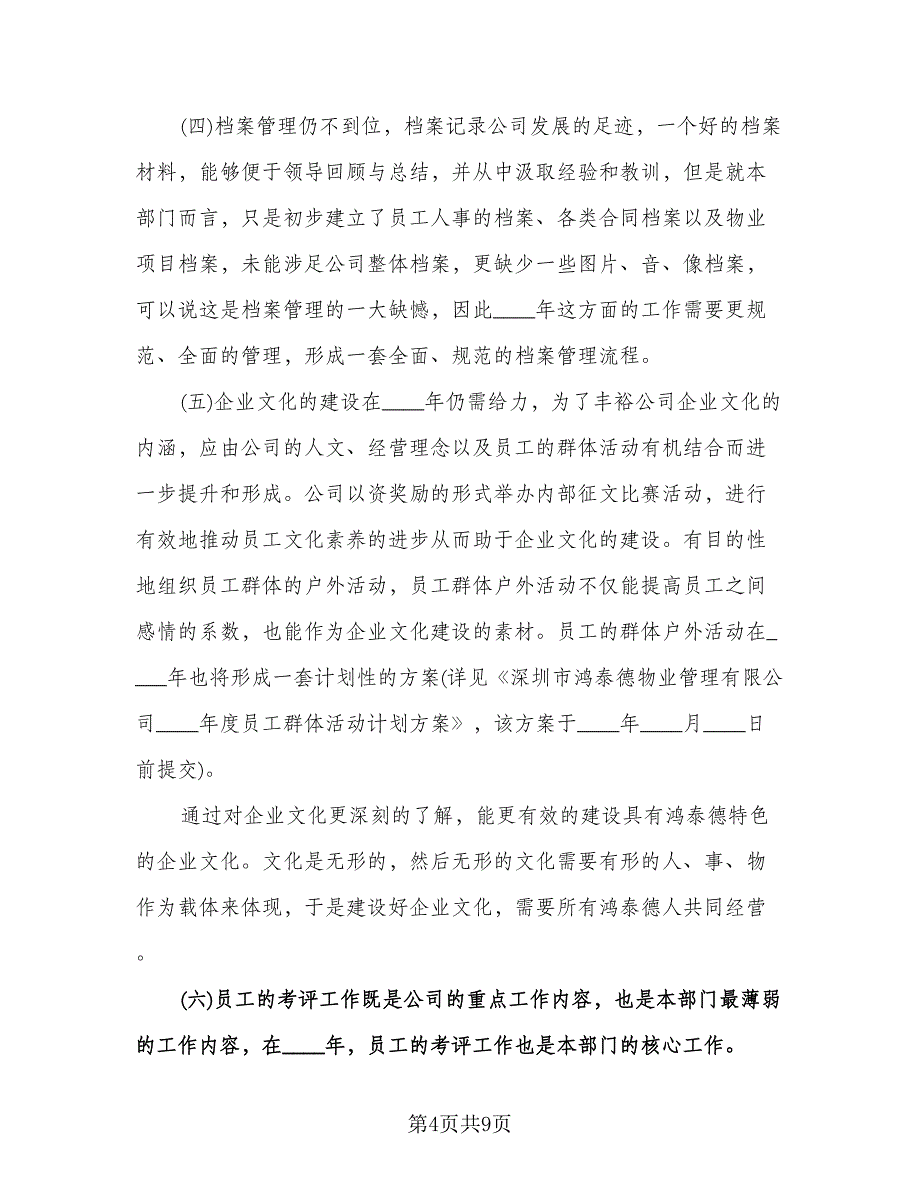 (四)档案管理仍不到位，档案记录公司发展的足迹，一个好的档案
材料，能够便于领导回顾与总结，并从中汲取经验和教训，但是就本
部门而言，只是初步建立了员工人事的档案、各类合同档案以及物业
项目档案，未能涉足公司整体档案，更缺少一些图片、音、像档案，
可以说这是档案管理的一大缺憾，因此____年这方面的工作需要更规
范、全面的管理，形成一套全面、规范的档案管理流程。
(五)企业文化的建设在____年仍需给力，为了丰裕公司企业文化的
内涵，应由公司的人文、经营理念以及员工的群体活动有机结合而进
一步提升和形成。公司以资奖励的形式举办内部征文比赛活动，进行
有效地推动员工文化素养的进步从而助于企业文化的建设。有目的性
地组织员工群体的户外活动，员工群体户外活动不仅能提高员工之间
感情的系数，也能作为企业文化建设的素材。员工的群体户外活动在_
___年也将形成一套计划性的方案(详见《深圳市鸿泰德物业管理有限公
司____年度员工群体活动计划方案》，该方案于____年____月____日
前提交)。
通过对企业文化更深刻的了解，能更有效的建设具有鸿泰德特色
的企业文化。文化是无形的，然后无形的文化需要有形的人、事、物
作为载体来体现，于是建设好企业文化，需要所有鸿泰德人共同经营
。
(六)员工的考评工作既是公司的重点工作内容，也是本部门最薄弱
的工作内容，在____年，员工的考评工作也是本部门的核心工作。
第4页共9页